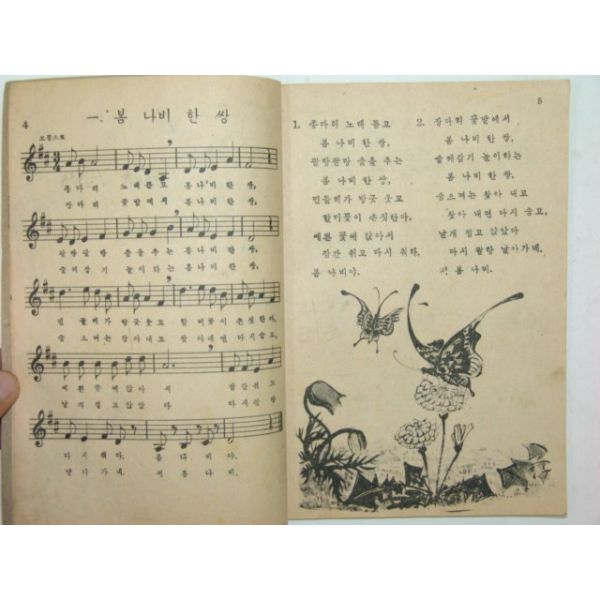 4
一. 봄 나비 한 쌍
보통으로
종다리 노래듣고 봄나비한쌍,
장다리 꽃밭에서 봄나비한쌍,
팔랑팔랑 춤을추는 봄나비한쌍,
숨바꼭기 놀이하는 봄나비한쌍,
민들레가 방긋웃고 할미꽃이 손짓한다.
숨으며는 찾아내고 찾아내면 다시숨고,
예쁜꽃에앉아서 잠깐쉬고
날개접고앉았다 다시팔랑
다시쉬다. 봄나비야.
날아가네. 봄나비.
5
1. 종다리 노래 듣고
봄 나비 한 쌍,
팔랑팔랑 춤을 추는
봄 나비 한 쌍,
민들레가 방긋 웃고
할미꽃이 손짓한다.
예쁜 꽃에 앉아서
잠깐 쉬고 다시 쉬다.
봄 나비야.
2. 장다리 꽃밭에서
봄 나비 한 쌍,
놀이하는
봄 나비 한 쌍,
숨으며는 찾아 내고
찾아 내면 다시 숨고,
날개 접고 앉았다
다시 팔랑 날아가네.
봄 나비.